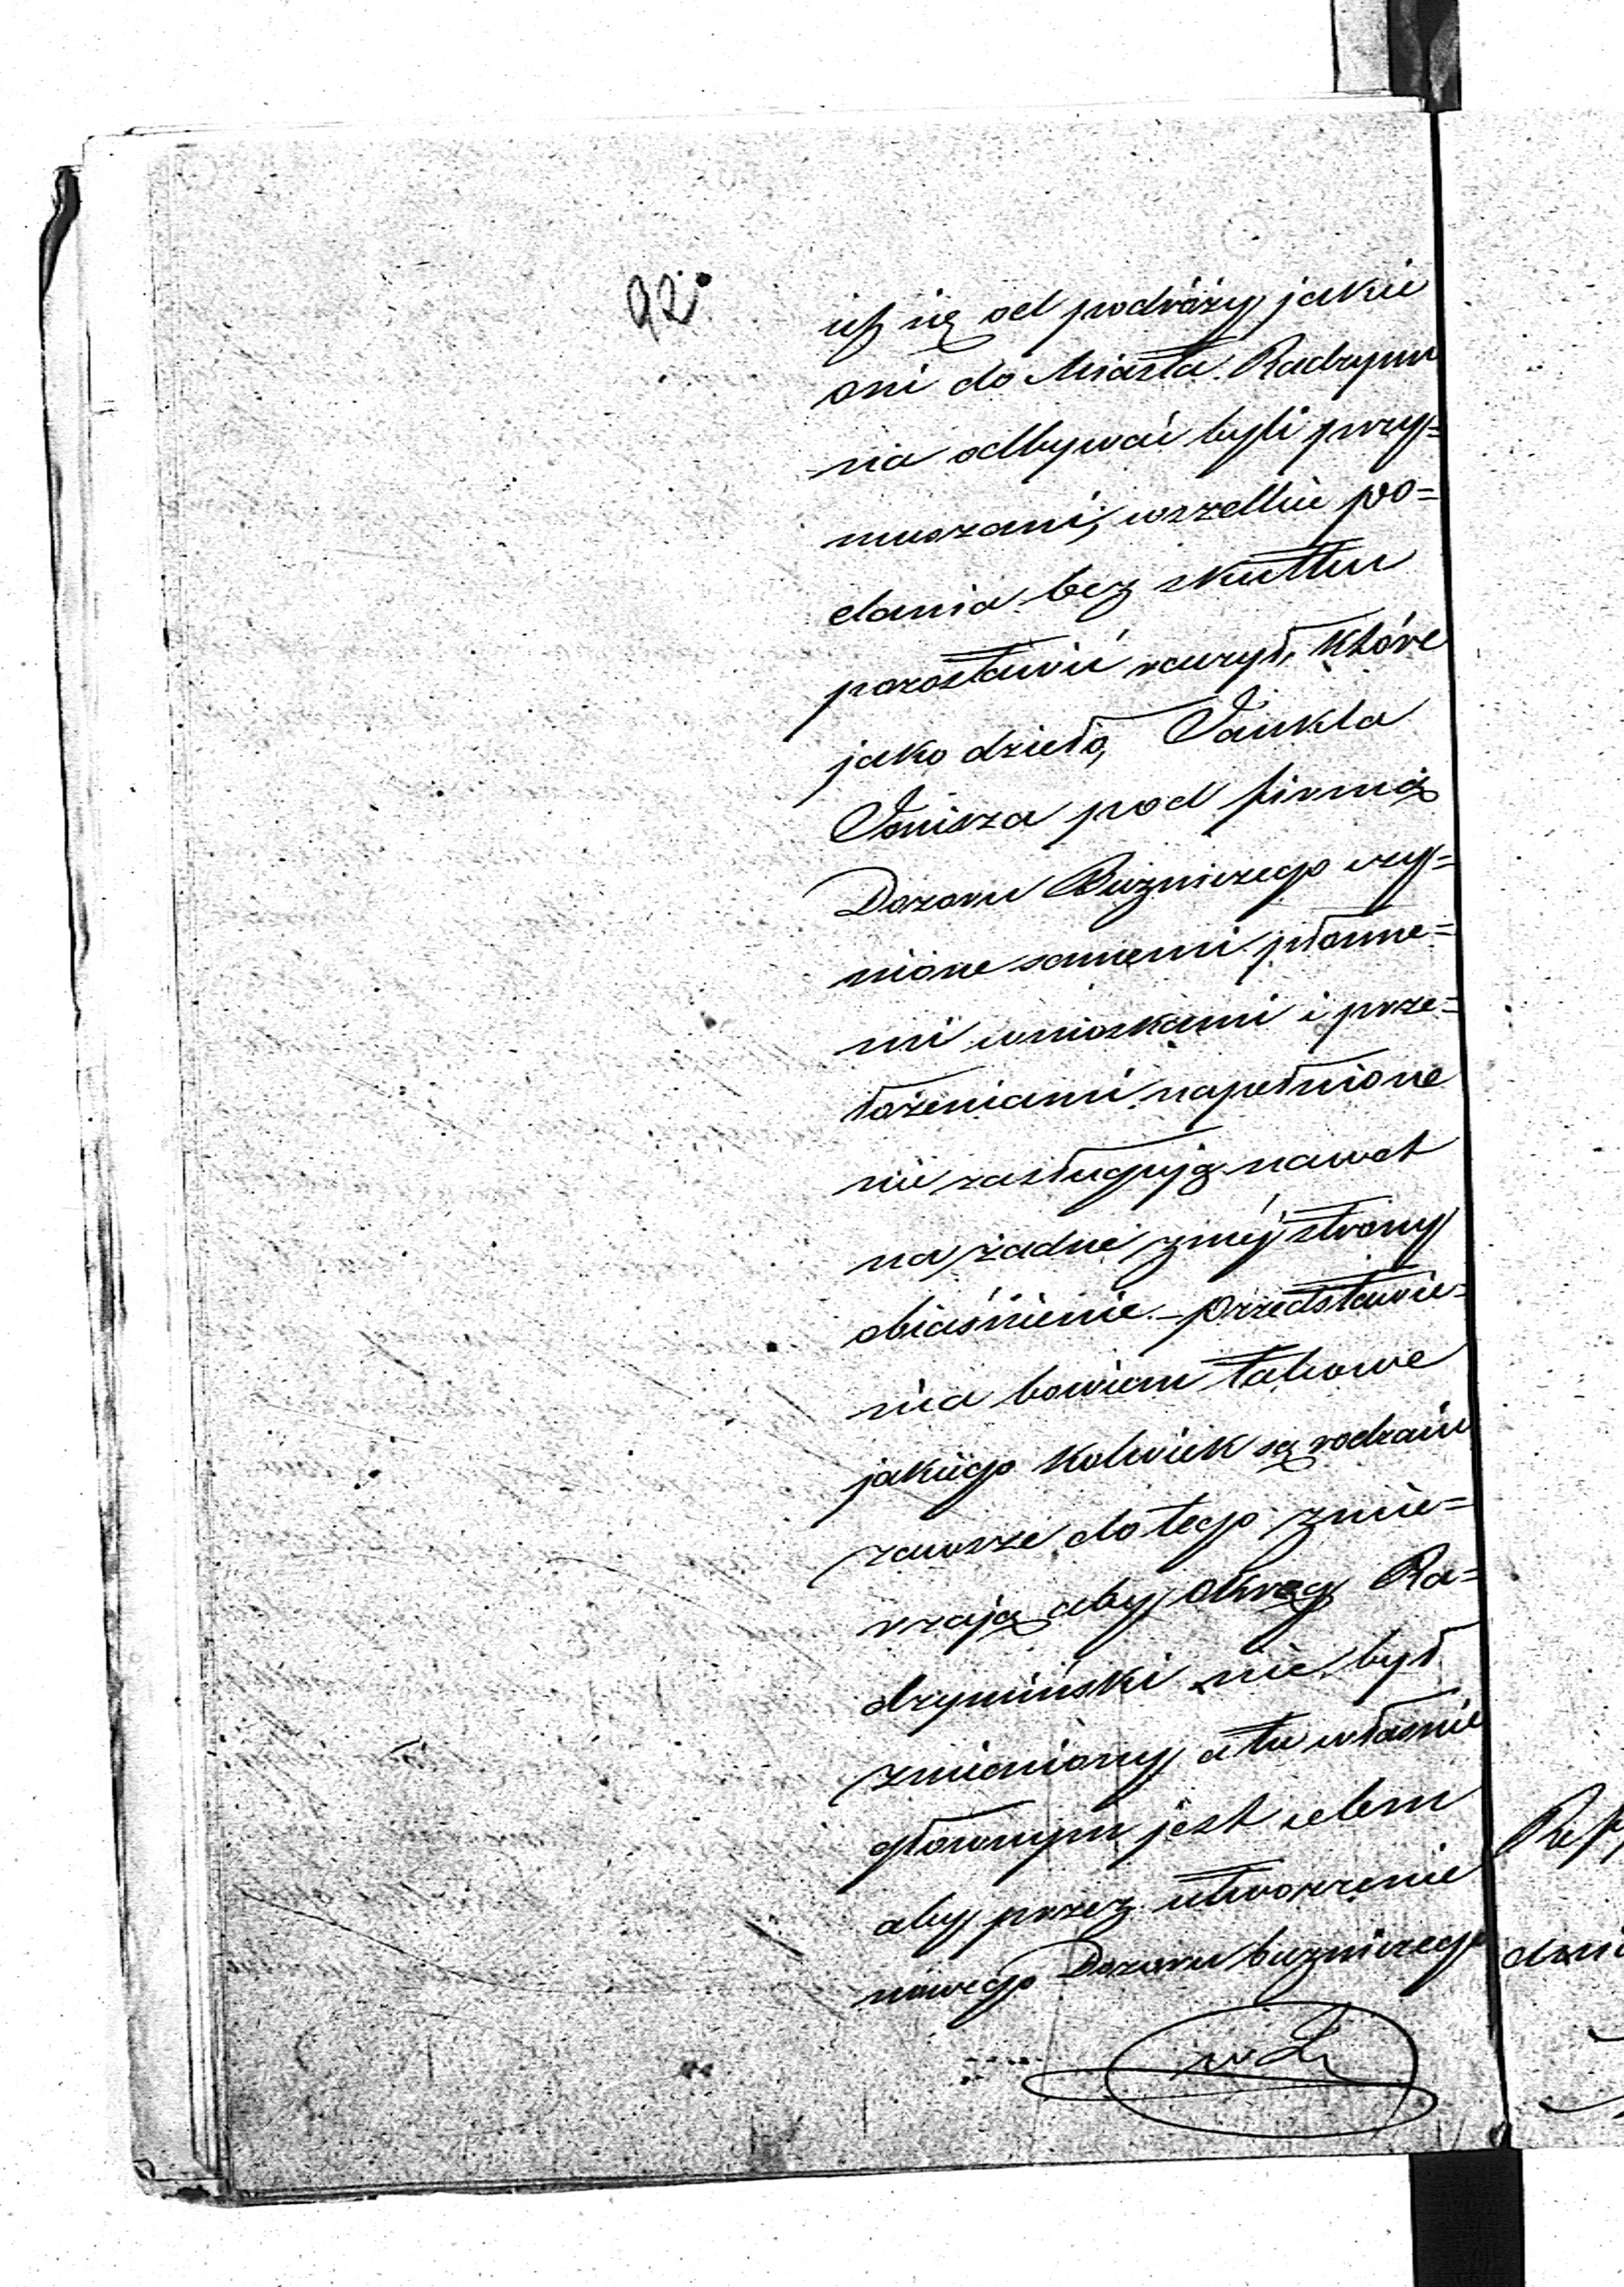 92.
ich się od podróży jakie
oni do Miasta Radzymi
nia odbywać byli przy=
muszani, wszelkie po=
dania bez skutku
pozostawić raczył, które
jako dzieło, Jankla
Jonisza pod firmą
Dozoru Bużniczego uczy=
nione samemi płonne=
mi wnioskami i prze=
łożeniami napełnione
nie zasługują nawet
na żadne z mej strony
obiaśnienie – przedstawie=
nia bowiem takowe
jakiego kolwiek są rodzaiu
zawsze do tego zmie=
rzają aby Okręg Ra=
dzymiński nie był
zmieniony a tu właśnie
głównym jest celem
aby przez utworzenie
nowego Dozoru bużniczego